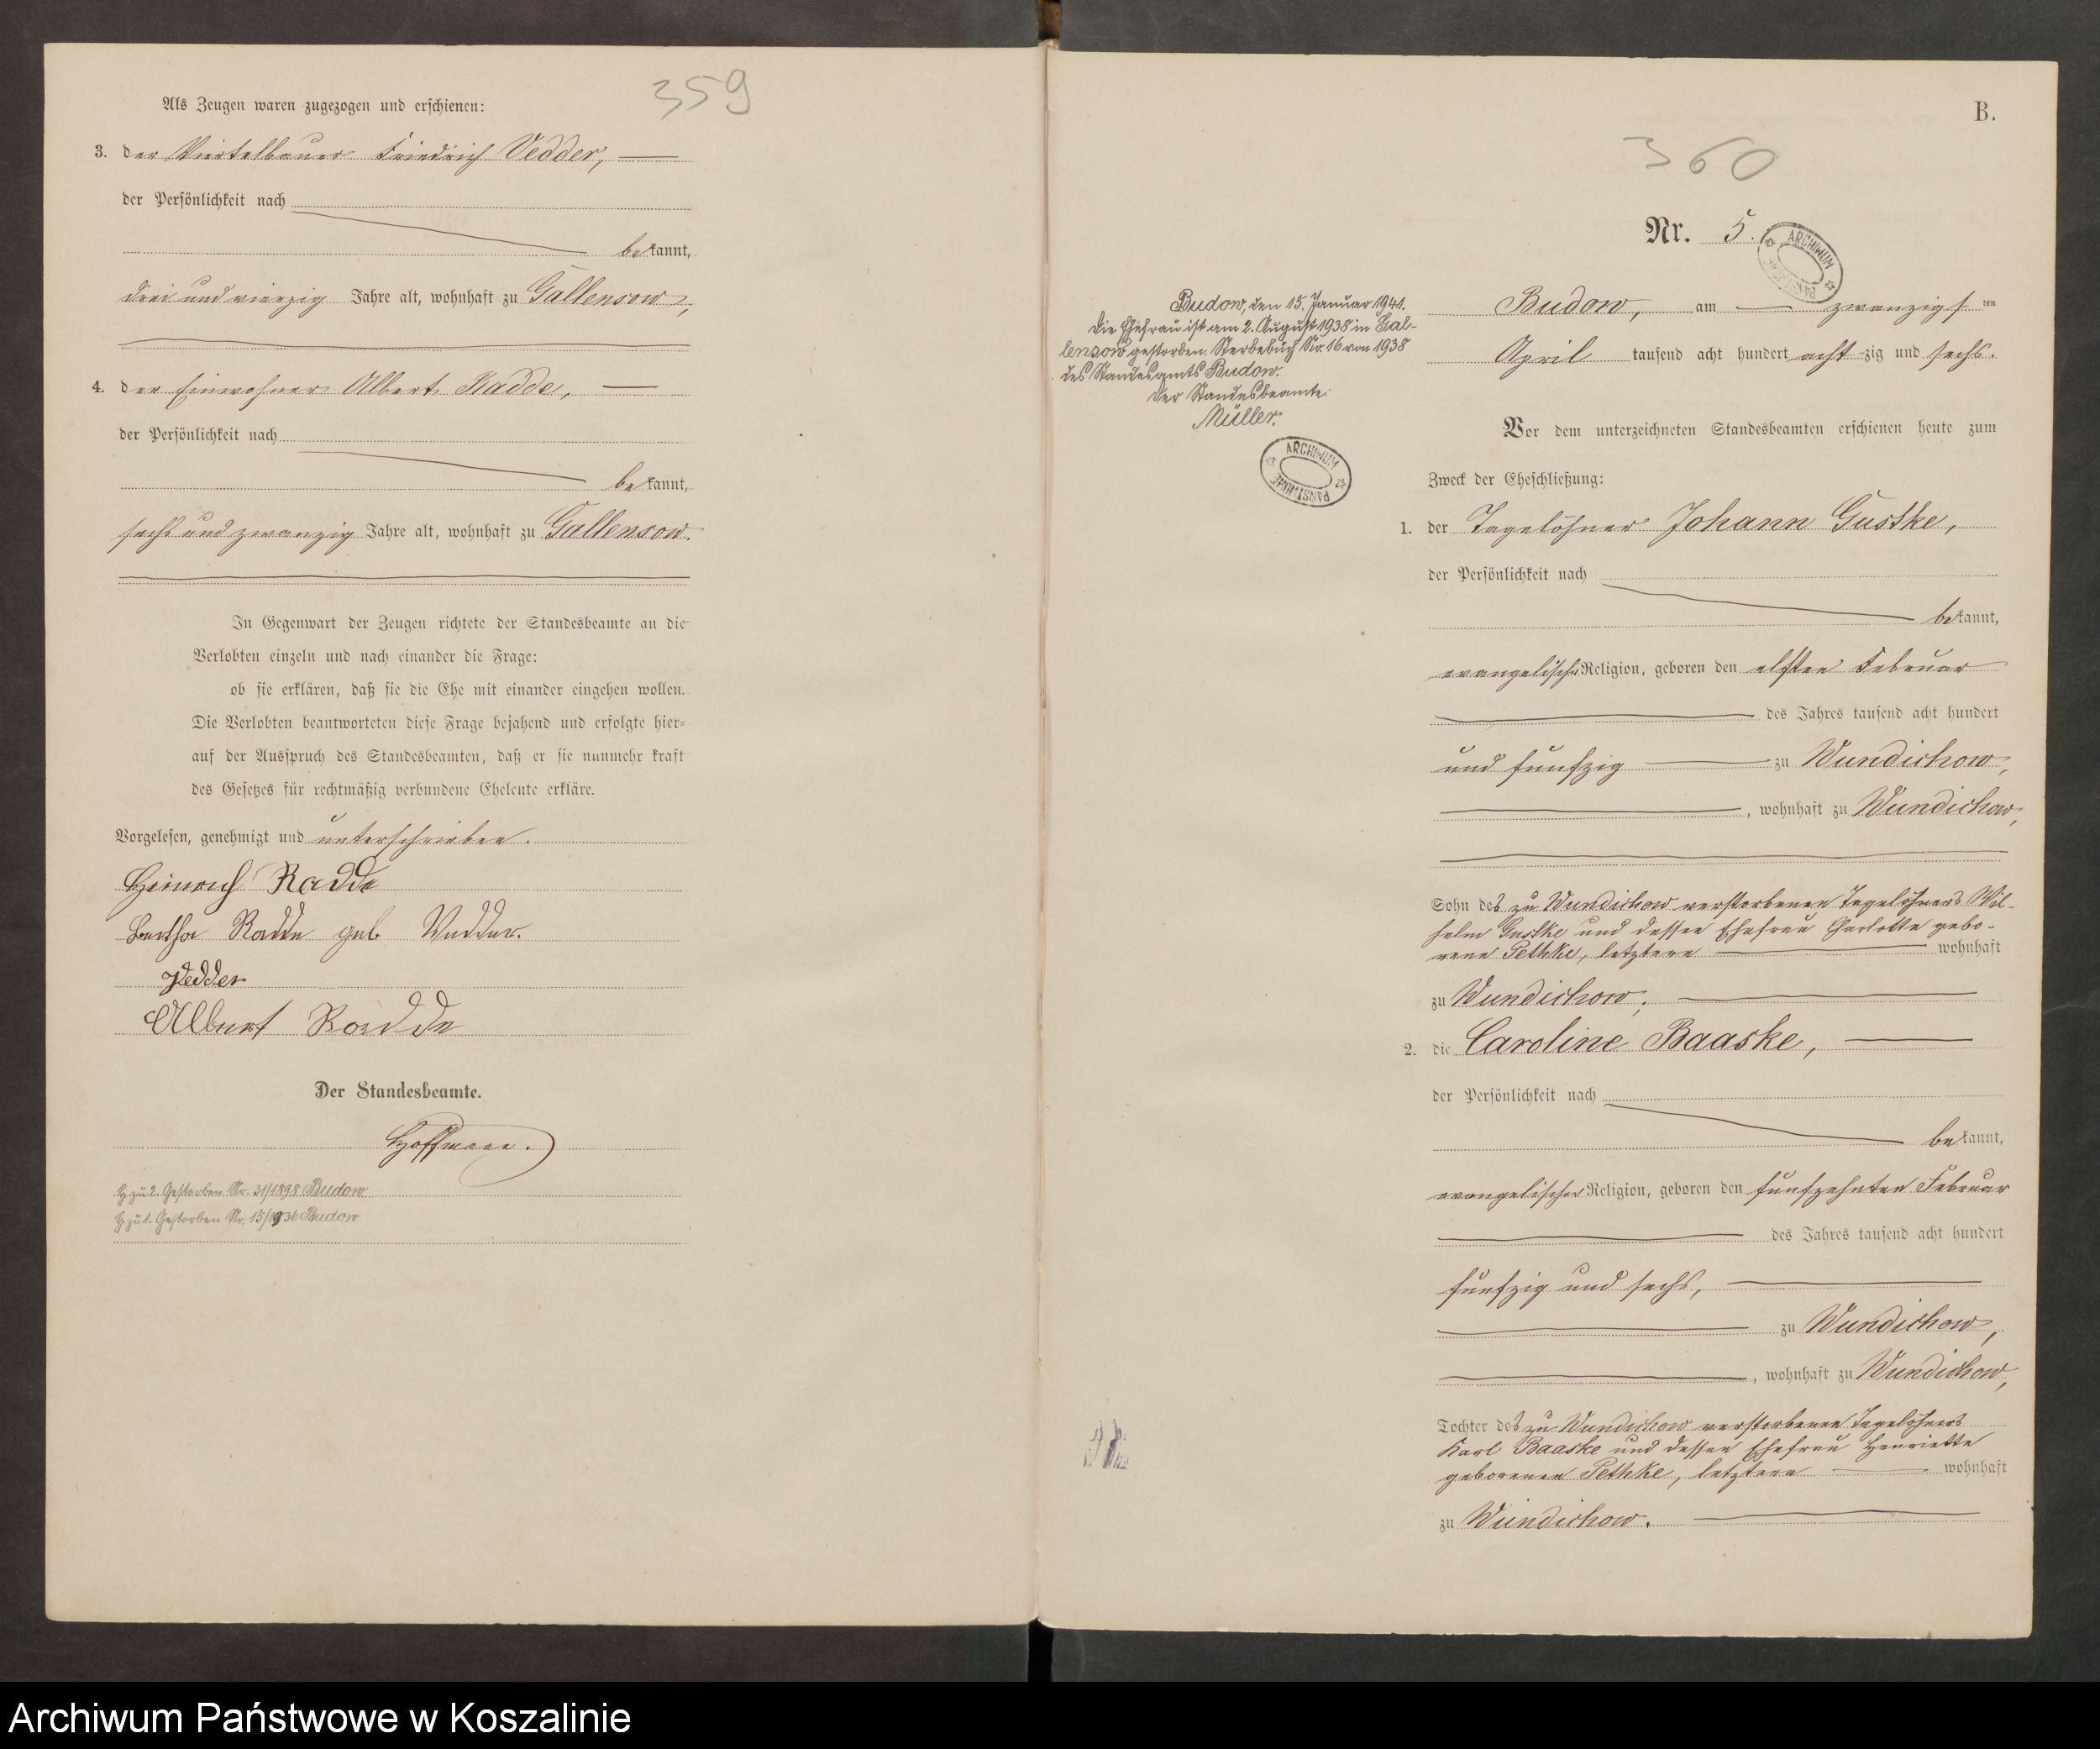 359
Als Zeugen waren zugezogen und erschienen:
3. der Viertelbauer Friedrich Vedder,
der Persönlichkeit nach
bekannt,
drei und vierzig Jahre alt, wohnhaft zu Gallensow,
4. der Einwohner Albert Radde,
der Persönlichkeit nach
bekannt,
sechs und zwanzig Jahre alt, wohnhaft zu Gallensow.
In Gegenwart der Zeugen richtete der Standesbeamte an die
Verlobten einzeln und nach einander die Frage:
ob sie erklären, daß sie die Ehe mit einander eingehen wollen.
Die Verlobten beantworteten diese Frage bejahend und erfolgte hier-
auf der Ausspruch des Standesbeamten, daß er sie nunmehr kraft
des Gesetzes für rechtmäßig verbundene Eheleute erkläre.
Vorgelesen, genehmigt und unterschrieben.
Heinrich Radde
Bertha Radde geb Vedder.
Vedder
Albert Radde
Der Standesbeamte.
Hoffmann.
zu 2. Gestorben Nr. 31/1898 Budow
zu 1. Gestorben Nr. 15/1936 Budow
B.
360
Nr. 5.
ARCHIWUM PAŃSTWOWE
Budow, den 15. Januar 1941.
Die Ehefrau ist am 2. August 1938 in Gal-
lensow gestorben. Sterbebuch Nr. 16 von 1938
des Standesamts Budow.
Der Standesbeamte:
Müller.
ARCHIWUM PAŃSTWOWE
Budow, am zwanzigsten
April tausend acht hundert achtzig und sechs.
Vor dem unterzeichneten Standesbeamten erschienen heute zum
Zweck der Eheschließung:
1. der Tagelöhner Johann Gustke,
der Persönlichkeit nach
bekannt,
evangelischer Religion, geboren den elften Februar
des Jahres tausend acht hundert
und funfzig zu Wundichow,
, wohnhaft zu Wundichow,
Sohn des zu Wundichow verstorbenen Tagelöhners Wil-
helm Gustke und dessen Ehefrau Charlotte gebo-
rene Pethke, letztere wohnhaft
zu Wundichow;
2. die Caroline Baaske,
der Persönlichkeit nach
bekannt,
evangelischer Religion, geboren den funfzehnten Februar
des Jahres tausend acht hundert
funfzig und sechs,
zu Wundichow,
, wohnhaft zu Wundichow,
Tochter des zu Wundichow verstorbenen Tagelöhners
Karl Baaske und dessen Ehefrau Henriette
geborenen Pethke, letztere wohnhaft
zu Wundichow.
Archiwum Państwowe w Koszalinie